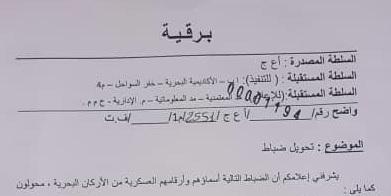 برقية
السلطة المصدرة : أ ع ج
السلطة المستقبلة : ( للتنفيذ) : ا ب – الأكاديمية البحرية – خفر السواحل – م4
السلطة المستقبلة :(للإعلام) المعتمدية – مد المعلوماتية – م. الإدارية - ح م م .
واضح رقم/ 0007194 /أ ع ج /2551/م1/ /ف.ت
الموضوع : تحويل ضباط
يشرفني إعلامكم أن الضباط التالية أسماؤهم وأرقامهم العسكرية من الأركان البحرية ، محولون
كما يلي :